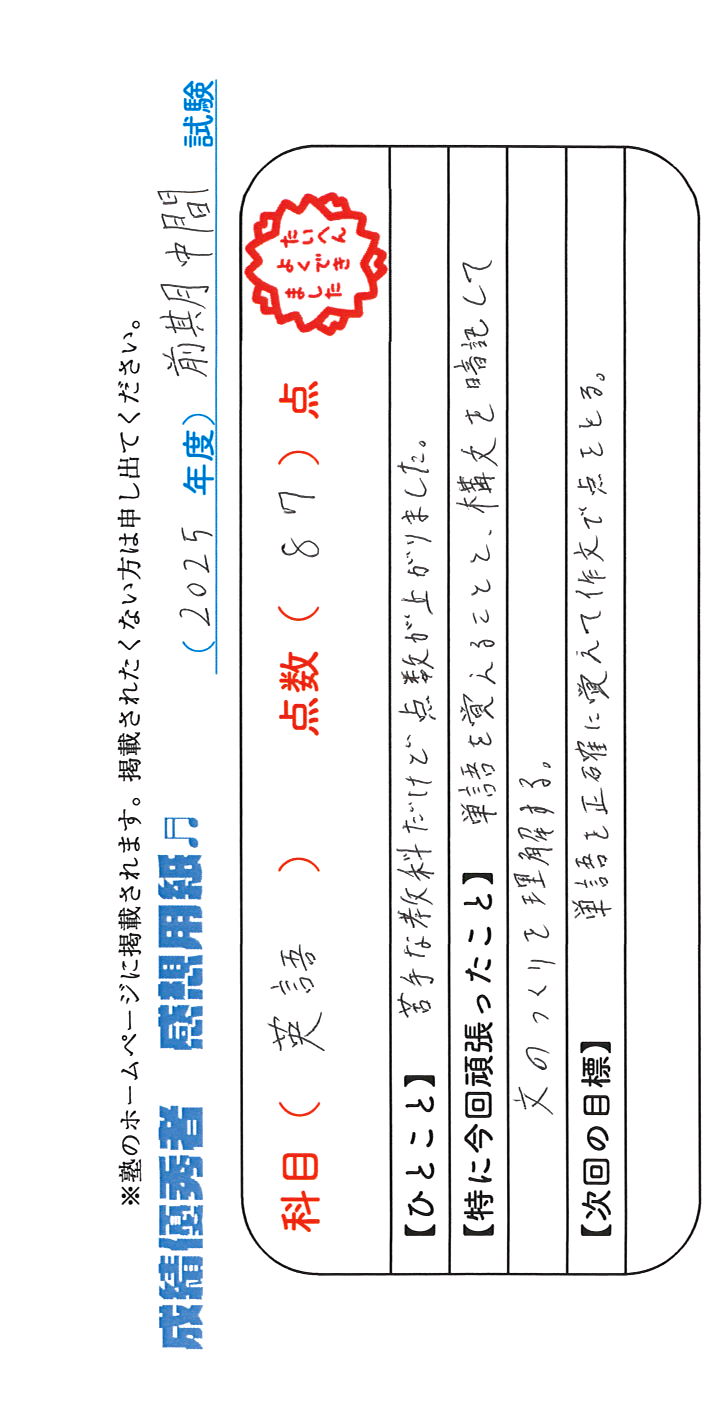 ※塾のホームページに掲載されます。掲載されたくない方は申し出てください。
成績優秀者 感想用紙♫ (2025 年度) 前期中間 試験
科目( 英語 ) 点数( 87 )点
たいへん
よくでき
ました
【ひとこと】 苦手な教科だけど点数が上がりました。
【特に今回頑張ったこと】 単語を覚えることと、構文を暗記して
文のつくりを理解する。
【次回の目標】 単語を正確に覚えて作文で点をとる。